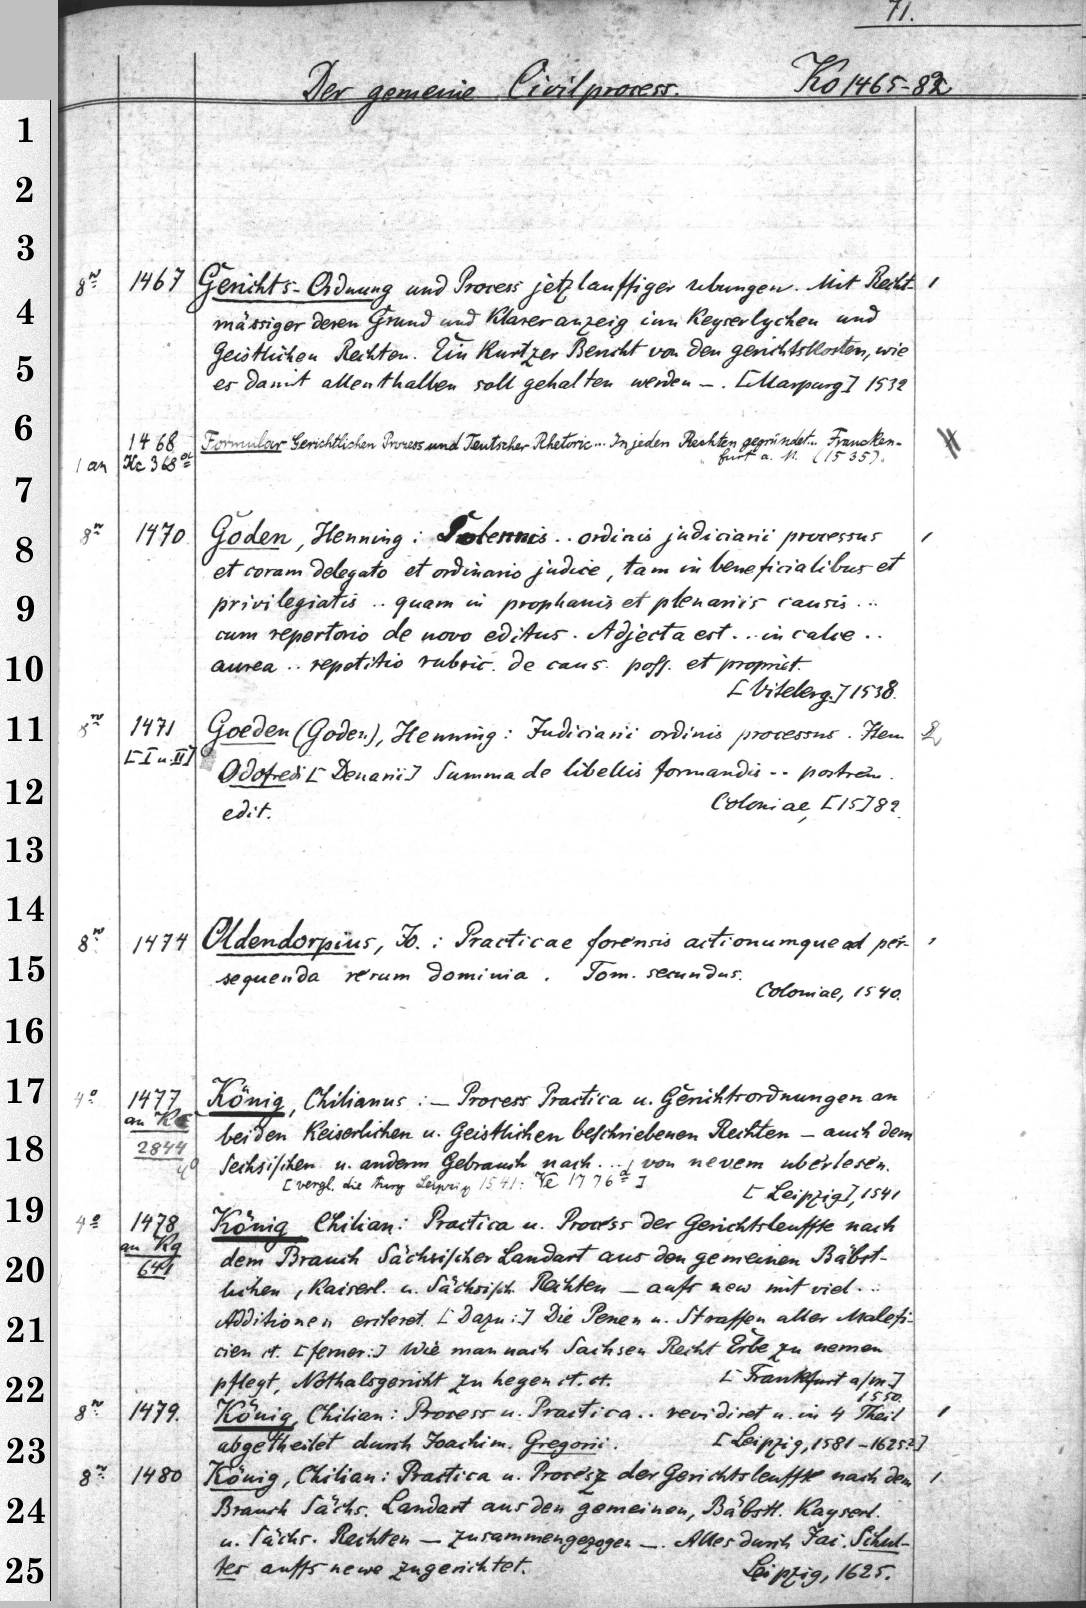 71.
Der gemeine Civilprocess. Ko 1465-82
1
2
3
8° 1467 Gerichts-Ordnung und Process jetzlauffiger ubungen. Mit Recht- 1
4
mässiger deren Grund und Klarer anzeig inn Keyserlychen und
Geistlichen Rechten. Ein Kurtzer Bericht von den gerichtskosten, wie
5
es damit allenthalben soll gehalten werden —. [Marpurg] 1532
6
1468 Formular Gerichtlichen Process und Teutscher Rhetoric... In jeden Rechten gegründet... Francken-
1 an Kc 368 furt a. M. (1535).
7
8° 1470 Goden, Henning: Solennis .. ordinis judiciarii processus 1
8
et coram delegato et ordinario judice, tam in beneficialibus et
9
privilegiatis .. quam in prophanis et plenariis causis ...
cum repertorio de novo editus. Adjecta est .. in calce ..
10
aurea .. repetitio rubric. de caus. poss. et propriet.
[Viteberg.] 1538.
11
8° 1471 Goeden (Goden), Henning: Judiciarii ordinis processus. Item 2
[I u. II] Odofredi [Denarii] Summa de libellis formandis .. postrem.
12
edit. Coloniae, [15]82.
13
14
8° 1474 Oldendorpius, Jo.: Practicae forensis actionumque ad per- 1
15
sequenda rerum dominia. Tom. secundus.
Coloniae, 1540.
16
17
4° 1477 König, Chilianus: — Process Practica u. Gerichtsordnungen an
an
18
2844 beiden Keiserlichen u. Geistlichen beschriebenen Rechten — auch dem
4° Sechsischen u. anderm Gebrauch nach ..., von nevem uberlesen.
[vergl. die Leipzig 1541: 1776] [Leipzig], 1541
19
4° 1478 König Chilian: Practica u. Process der Gerichtsleuffte nach
an Kg
20
641 dem Brauch Sächsischer Landart aus den gemeinen Bäbst-
lichen, Kaiserl. u. Sächsisch. Rechten — aufs new mit viel ...
21
Additionen [Dazu:] Die Penen u. Straffen aller Malefi-
cien et. [ferner:] Wie man nach Sachsen Recht Erbe zu nemen
22
pflegt, Nothalsgericht zu hegen et. et. [Frankfurt a/m.]
1550.
8° 1479. König, Chilian: Process u. Practica .. revidiret u. in 4 Theil 1
23
abgetheilet durch Joachim. Gregorii. [Leipzig, 1581-1625?]
8° 1480 König, Chilian: Practica u. Procesz der Gerichtsleuffte nach dem 1
24
Brauch Sächs. Landart aus den gemeinen, Bäbstl. Kayserl.
u. Sächs. Rechten — zusammengezogen —. Alles durch Jac. Schul-
25
tes auffs newe zugerichtet. Leipzig, 1625.